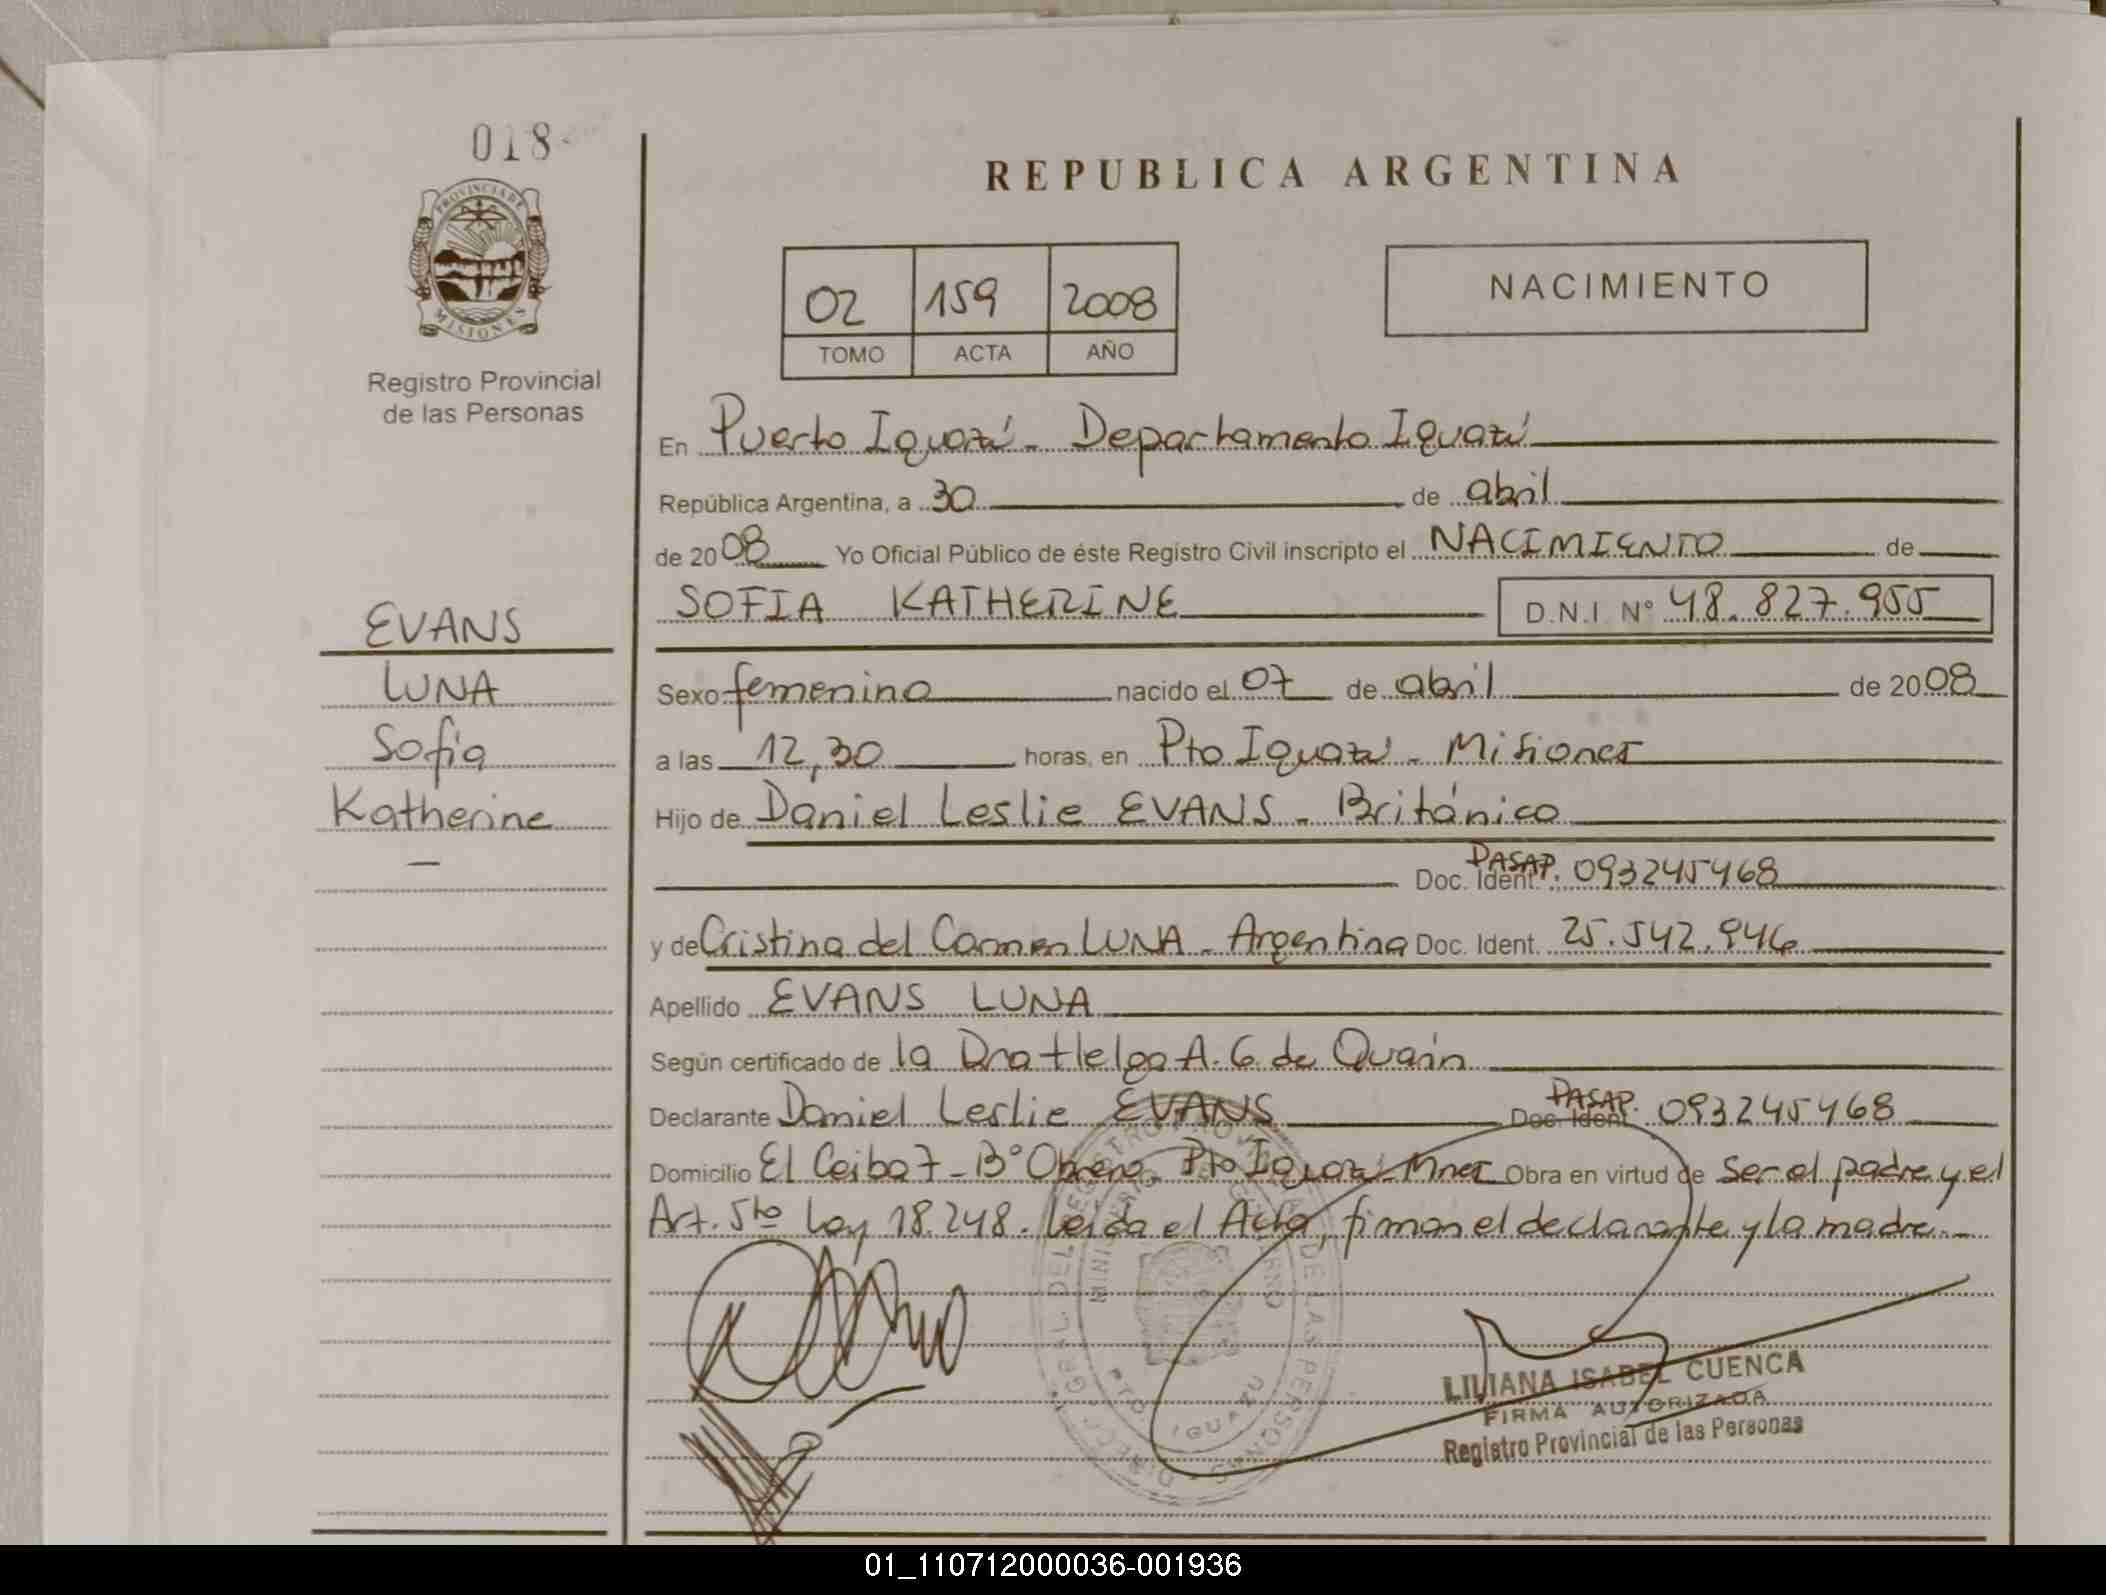 018
PROVINCIA DE
MISIONES
Registro Provincial
de las Personas
EVANS
LUNA
Sofia
Katherine
—
REPUBLICA ARGENTINA
02 159 2008
TOMO ACTA AÑO
NACIMIENTO
En Puerto Iguazú - Departamento Iguazú
República Argentina, a 30 de abril
de 2008 Yo Oficial Público de éste Registro Civil inscripto el NACIMIENTO de
SOFIA KATHERINE D.N.I. Nº 48.827.955
Sexo femenino nacido el 07 de abril de 2008
a las 12,30 horas, en Pto Iguazú - Misiones
Hijo de Daniel Leslie EVANS - Británico
Doc. Ident. PASAP. 093245468
y de Cristina del Carmen LUNA - Argentina Doc. Ident. 25.542.946
Apellido EVANS LUNA
Según certificado de la Dra Helga A. G. de
Declarante Daniel Leslie EVANS Doc. Ident. PASAP. 093245468
Domicilio El Ceibo 7 - Bº Obrero Pto Iguazú - Mnes Obra en virtud de Ser el padre y el
Art. 5to Ley 18.248. Leída el Acta, firman el declarante y la madre. -
DEL REGISTRO PROVINCIAL DE LAS PERSONAS
MINISTERIO DE GOBIERNO
PTO. IGUAZU
LILIANA ISABEL CUENCA
FIRMA AUTORIZADA
Registro Provincial de las Personas
01_110712000036-001936